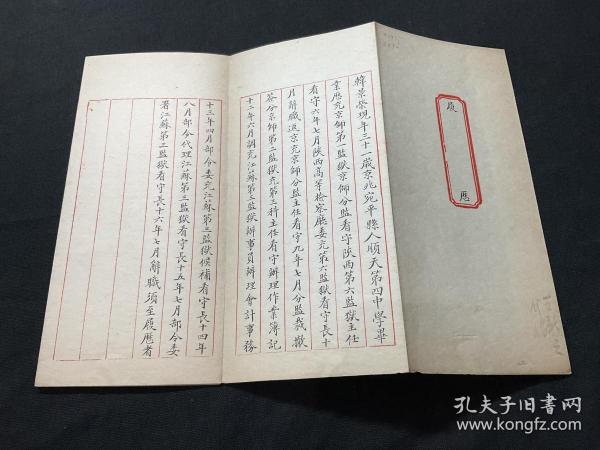 履歷
韓景榮現年三十一歲京兆宛平縣人順天第四中學畢
業歷充京師第一監獄京師分監看守陝西第六監獄主任
看守六年七月陝西高等檢察廳委充第六監獄看守長十
月辭職返京充京師分監主任看守九年七月分監裁撤
茶分京師第二監獄充第三科主任看守辦理作業簿記
十二年六月調充江蘇第三監獄辦事員辦理會計事務
十三年四月部令委充江蘇第三監獄候補看守長十四年
八月部令代理江蘇第三監獄看守長十五年七月部令委
署江蘇第三監獄看守長十六年七月辭職須至履歷者
孔夫子旧书网
www.kongfz.com